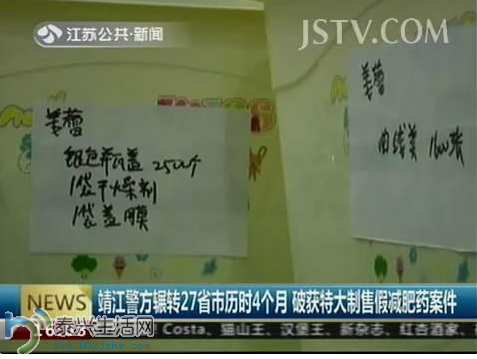 江苏公共·新闻
JSTV.COM
姜蕾
银色茶瓦盖 2500个
1袋干燥剂
1袋盖膜
姜蕾
肉毒美 1600张
NEWS
靖江警方辗转27省市历时4个月 破获特大制售假减肥药案件
泰兴生活网
Costa、猫山王、汉堡王、新杂志、红杏酒家、